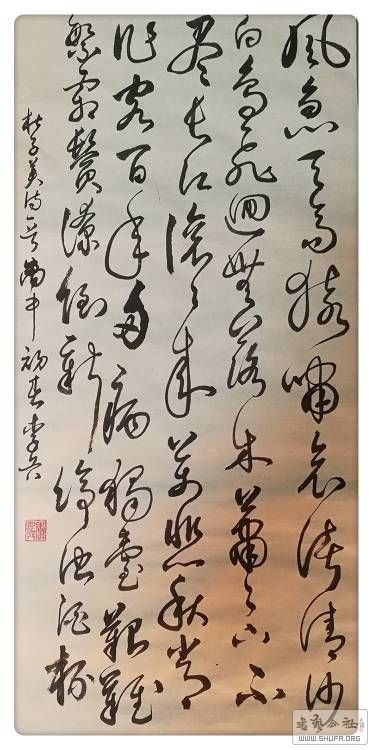 風急天高猿嘯哀渚清沙
白鳥飛迴無邊落木蕭蕭下不
盡長江滾滾來萬里悲秋常
作客百年多病獨登臺艱難
繁霜鬢潦倒新停濁酒杯
杜子美詩一首 初春
書藝公社
WWW.SHUFA.ORG